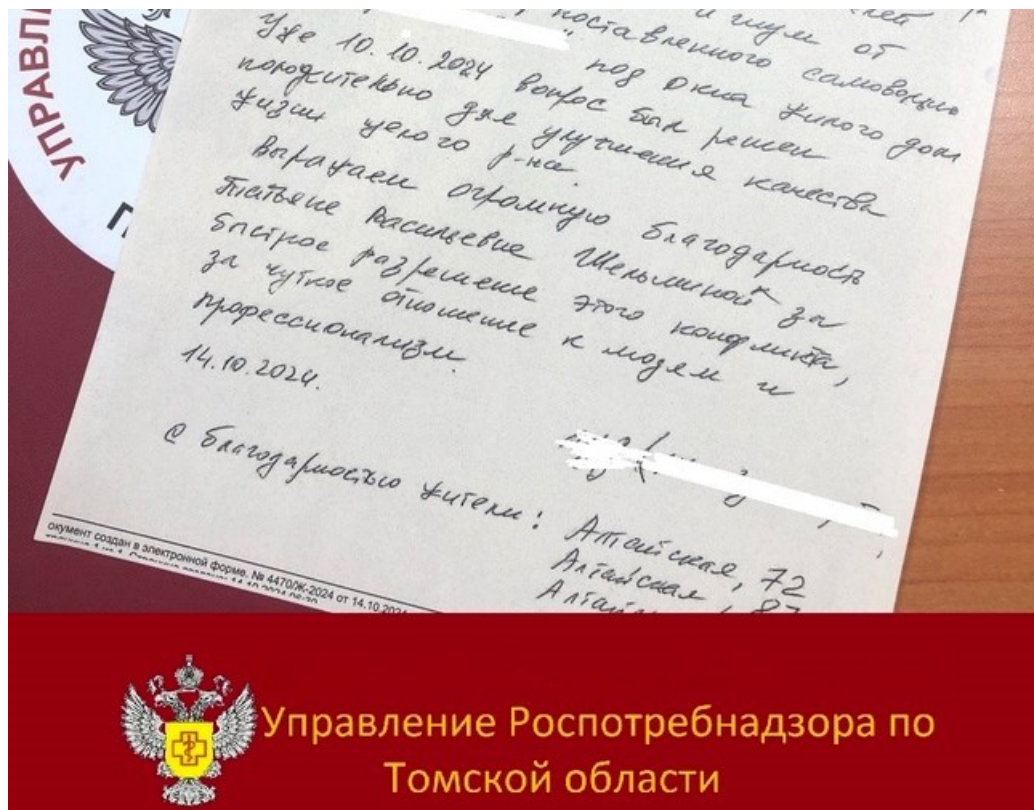 УПРАВЛ
и шум от
поставленного самовольно
под окна жилого дома
Уже 10.10.2024 вопрос был решен
положительно для улучшения качества
жизни целого р-на.
Выражаем огромную благодарность
Татьяне Васильевне Шельминой за
быстрое разрешение этого конфликта,
за чуткое отношение к людям и
профессионализм.
14.10.2024.
С благодарностью жители:
Алтайская, 72
Алтайская, 87
окумент создан в электронной форме. № 4470/Ж-2024 от 14.10.2024
Управление Роспотребнадзора по
Томской области